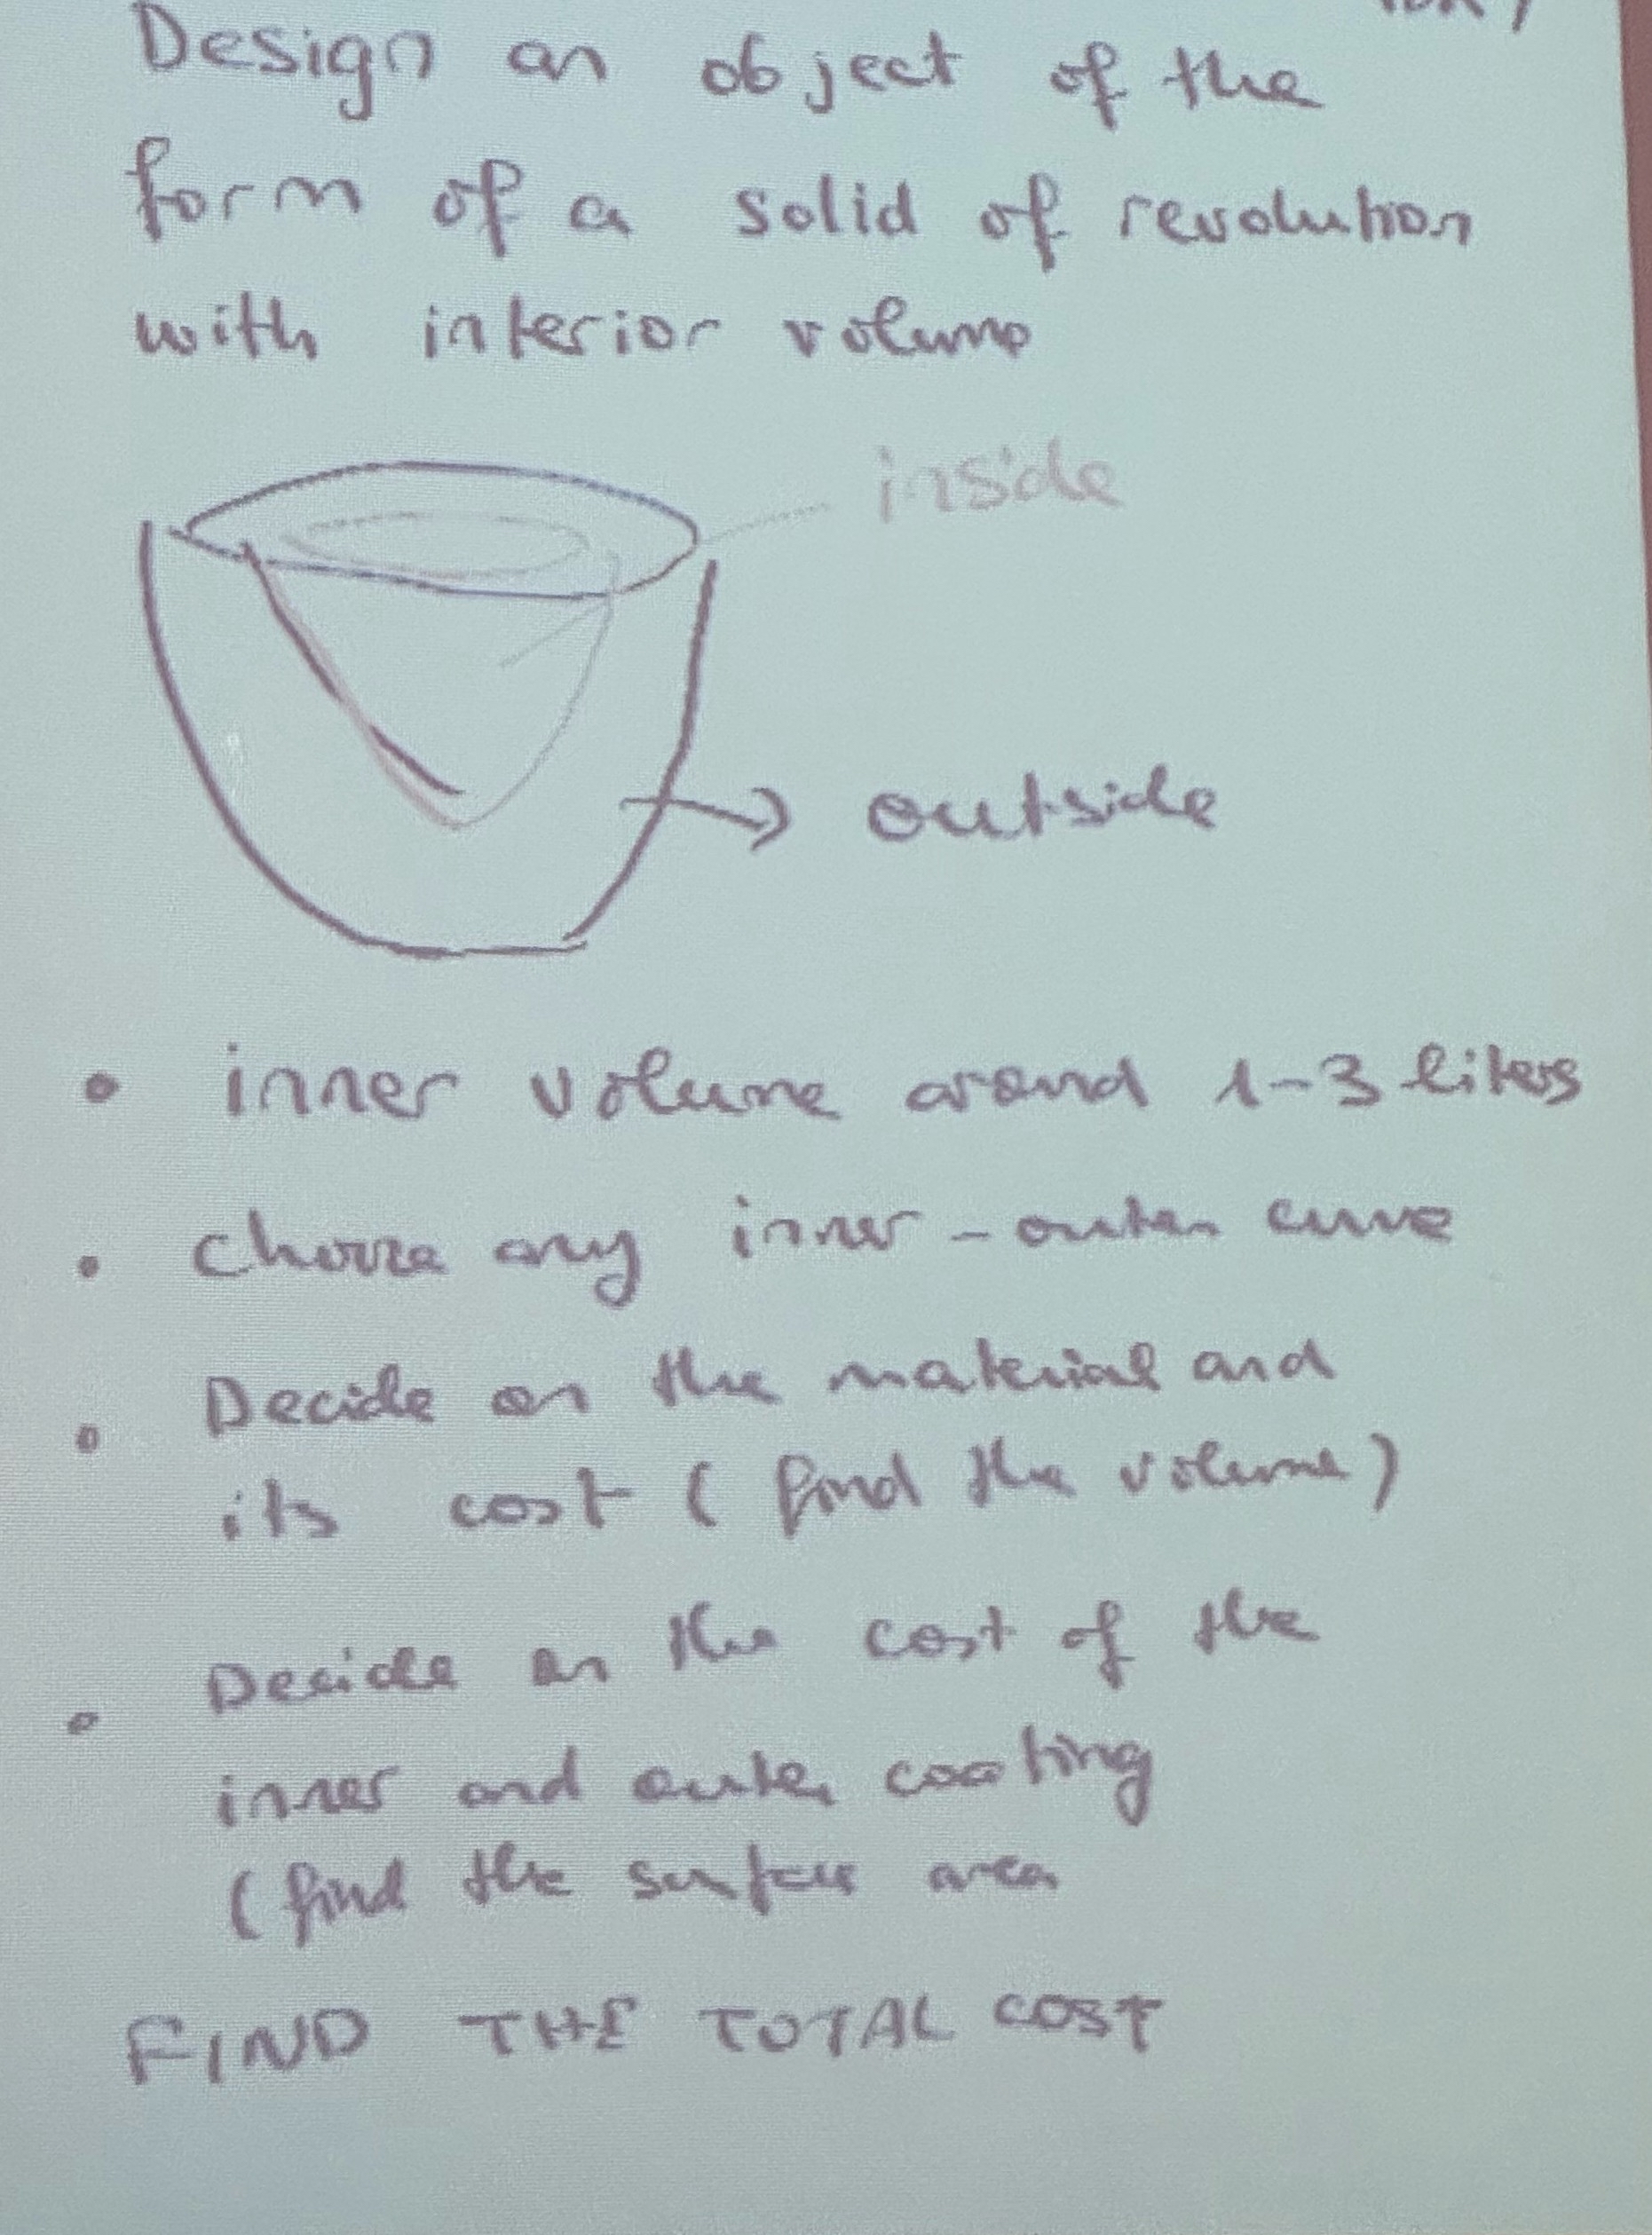 Design an object of the
form of a solid of revolution
with interior volume
inside
outside
• inner volume around 1-3 liters
• choose any inner - outer curve
• Decide on the material and
its cost ( find the volume )
• Decide on the cost of the
inner and outer coating
( find the surface area
FIND THE TOTAL COST